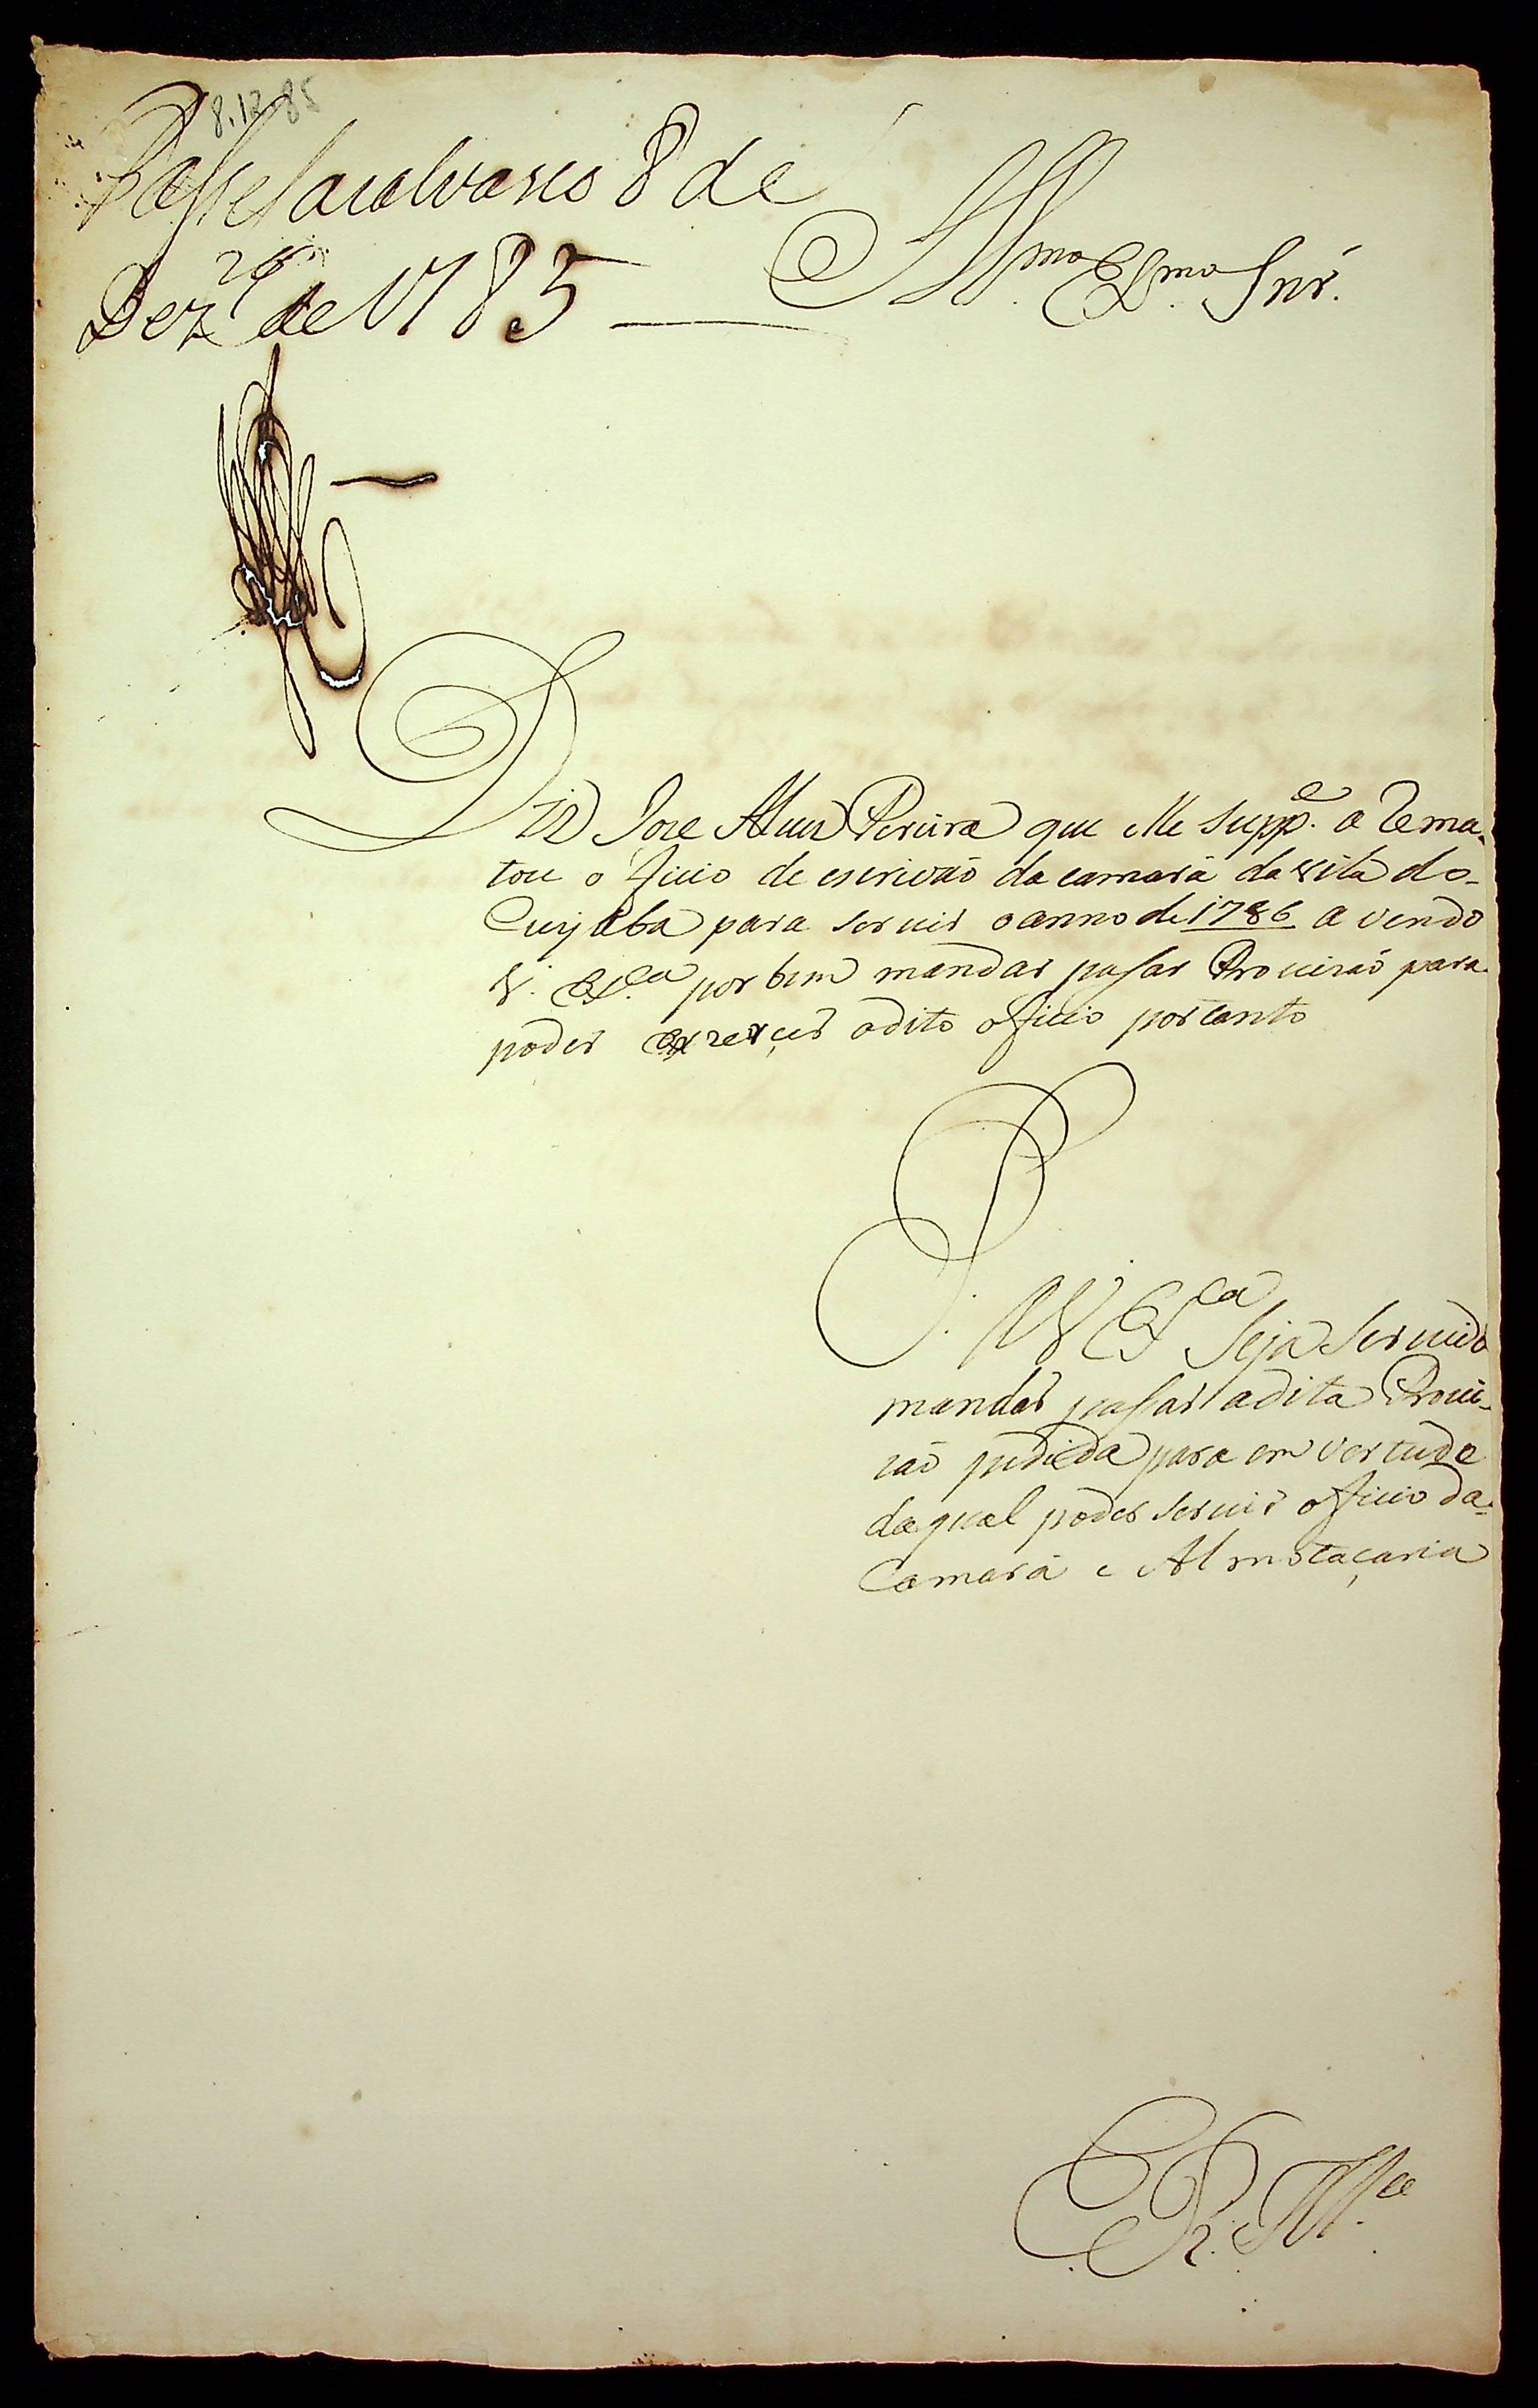 8.12.85
Passe Casalvasco 8 de
Dez.bro de 1785
Illmo. Exmo. Snr.
Diz Joze Alves Pereira que elle Supp.e a Rema-
tou o ficio de escrivaõ da camara da vila do-
Cuyaba para servir o anno de 1786 a vendo
V. Ex.ca por bem mandar pasar Provizaõ para
poder exzerçer o dito oficio portanto
P.
A V Ex.ca Seja Servido
mandar pasar a dita Provi-
zaõ pedida para em vertude
da qual poder servir oficio da
Camara e Almotaçaria
E. R. M.ce